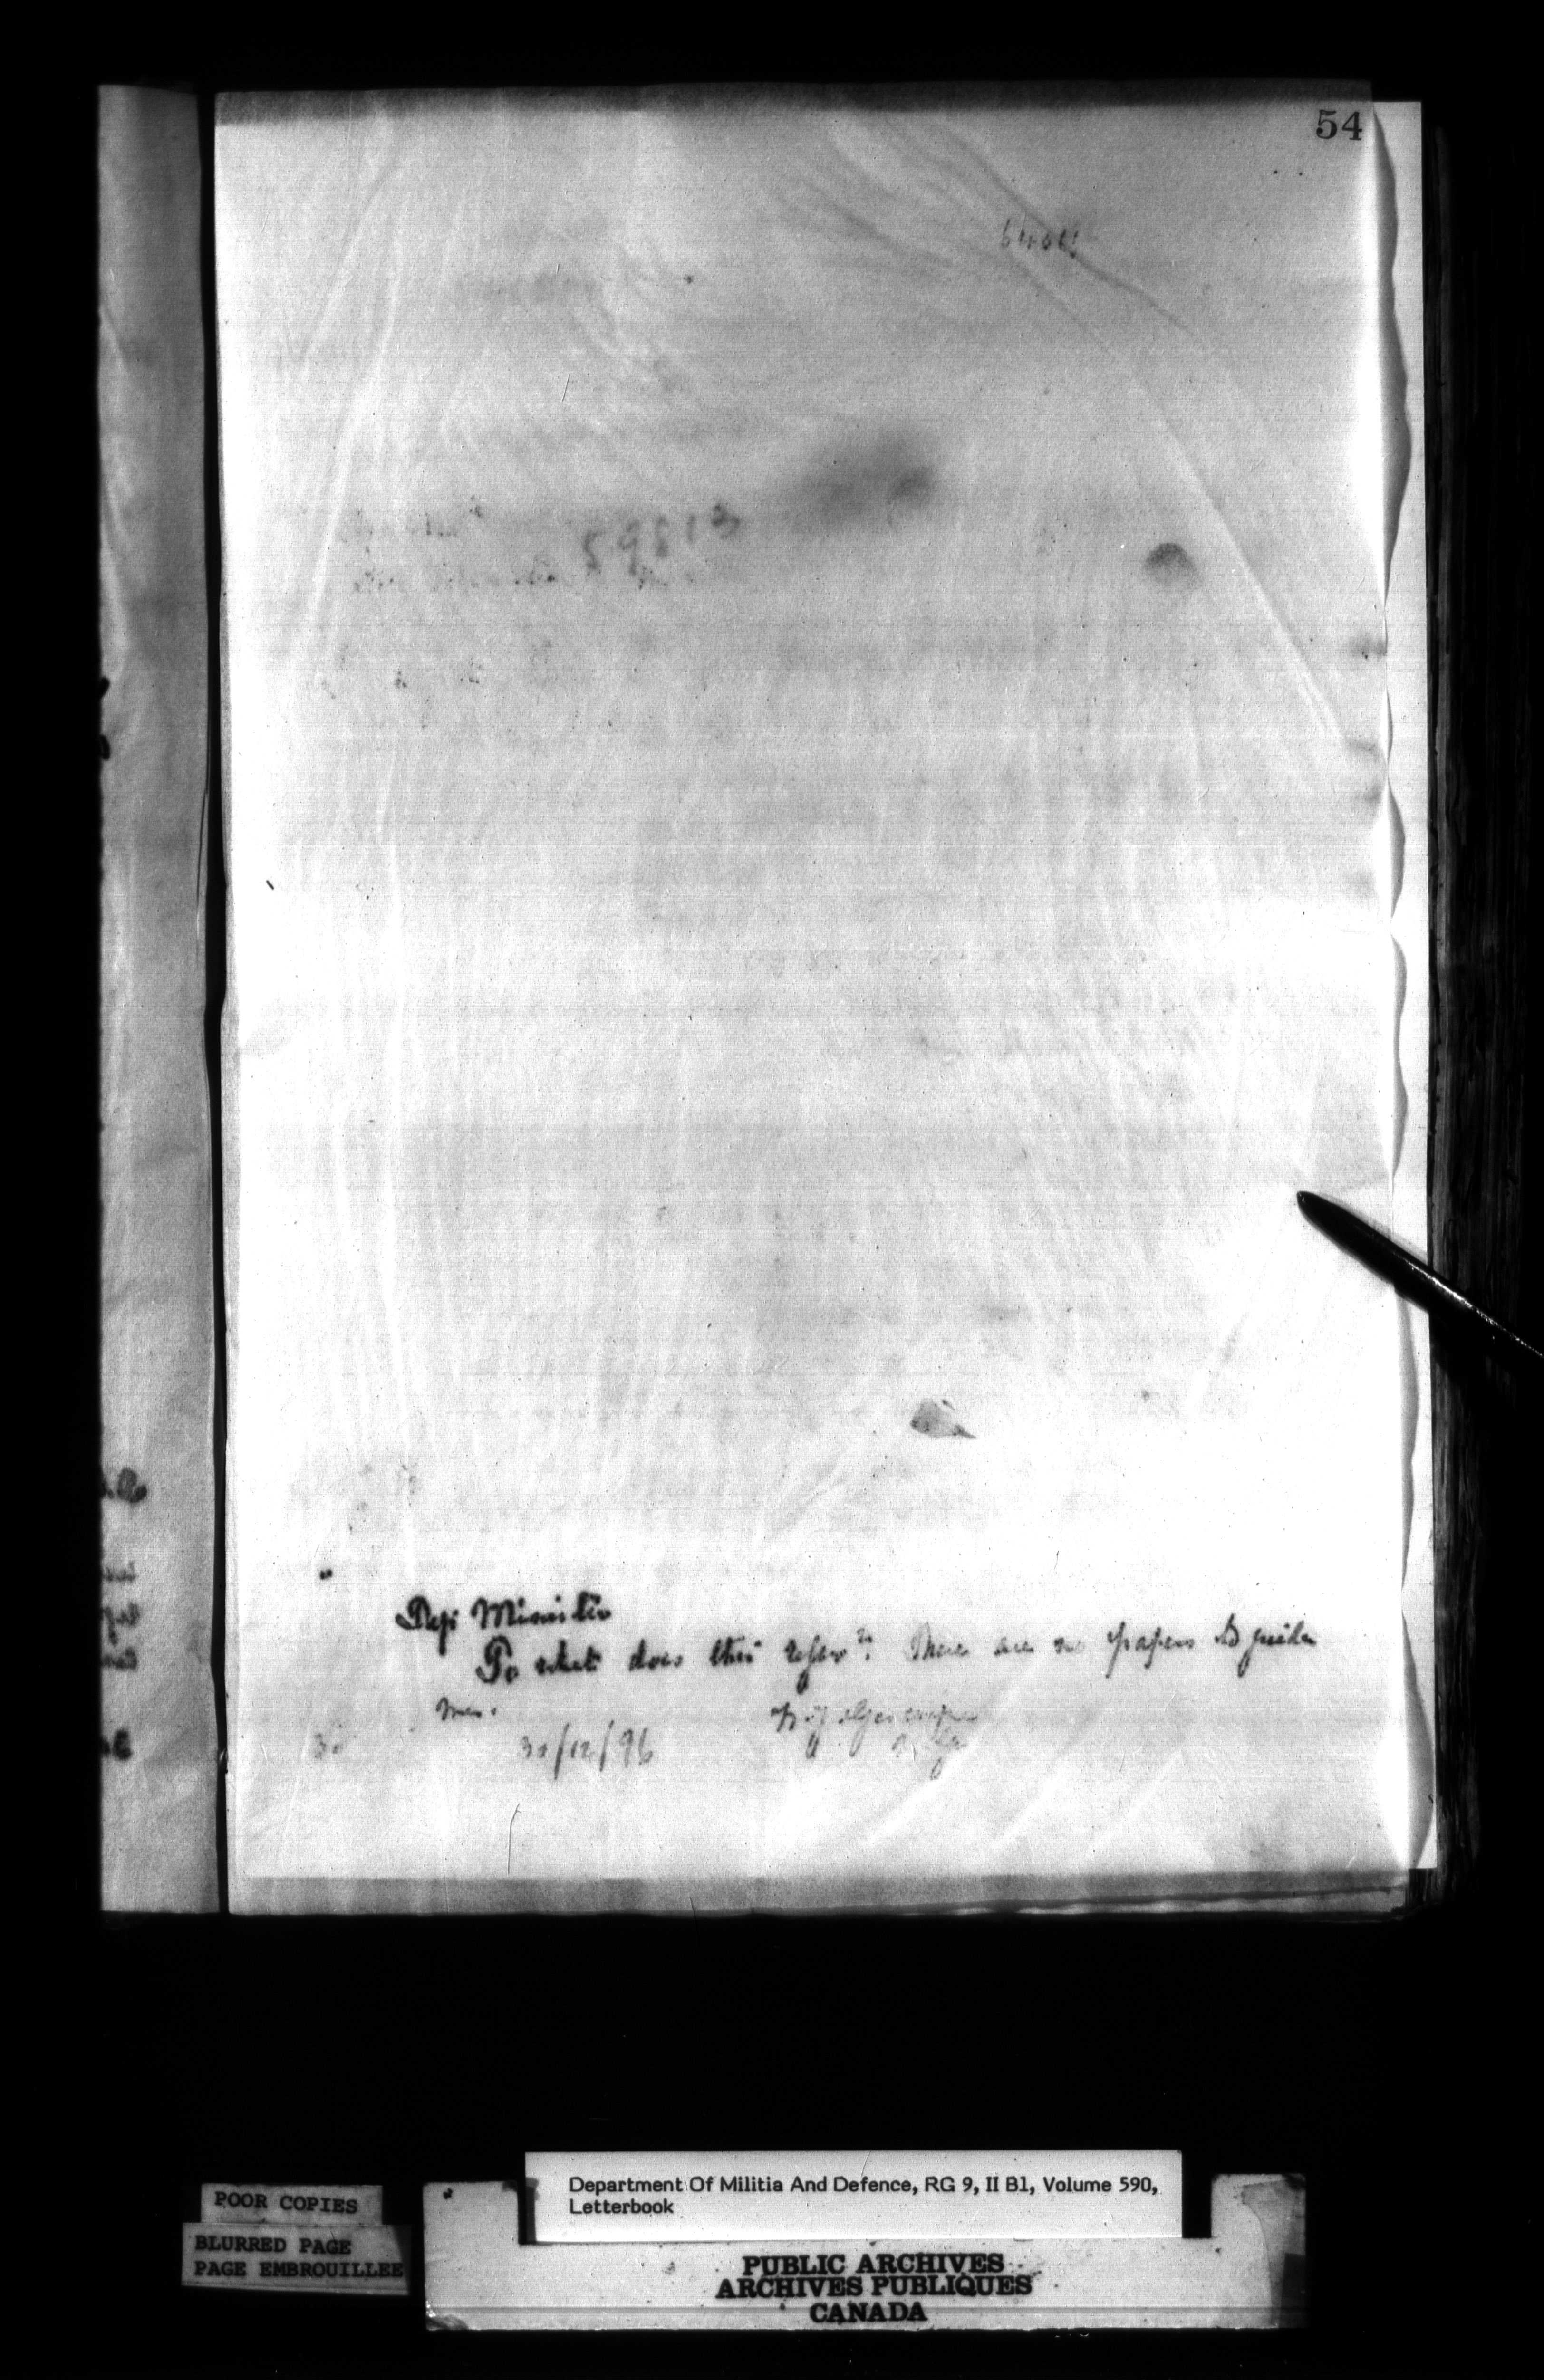 54
59813
Dep Minister
To what does this refer? There are no papers to guide
me.
30
30/12/96
POOR COPIES
BLURRED PAGE
PAGE EMBROUILLEE
Department Of Militia And Defence, RG 9, II B1, Volume 590,
Letterbook
PUBLIC ARCHIVES
ARCHIVES PUBLIQUES
CANADA